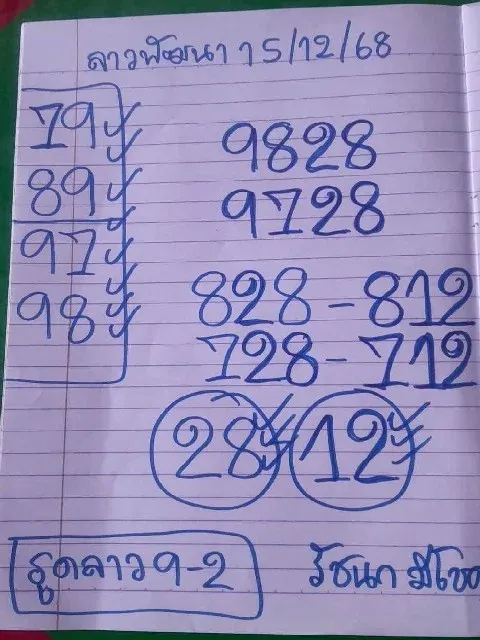 ลาวพัฒนา 15/12/68
79
89
97
98
9828
9728
828-812
728-712
28 12
รูดลาว 9-2
รัชนก มีโชค